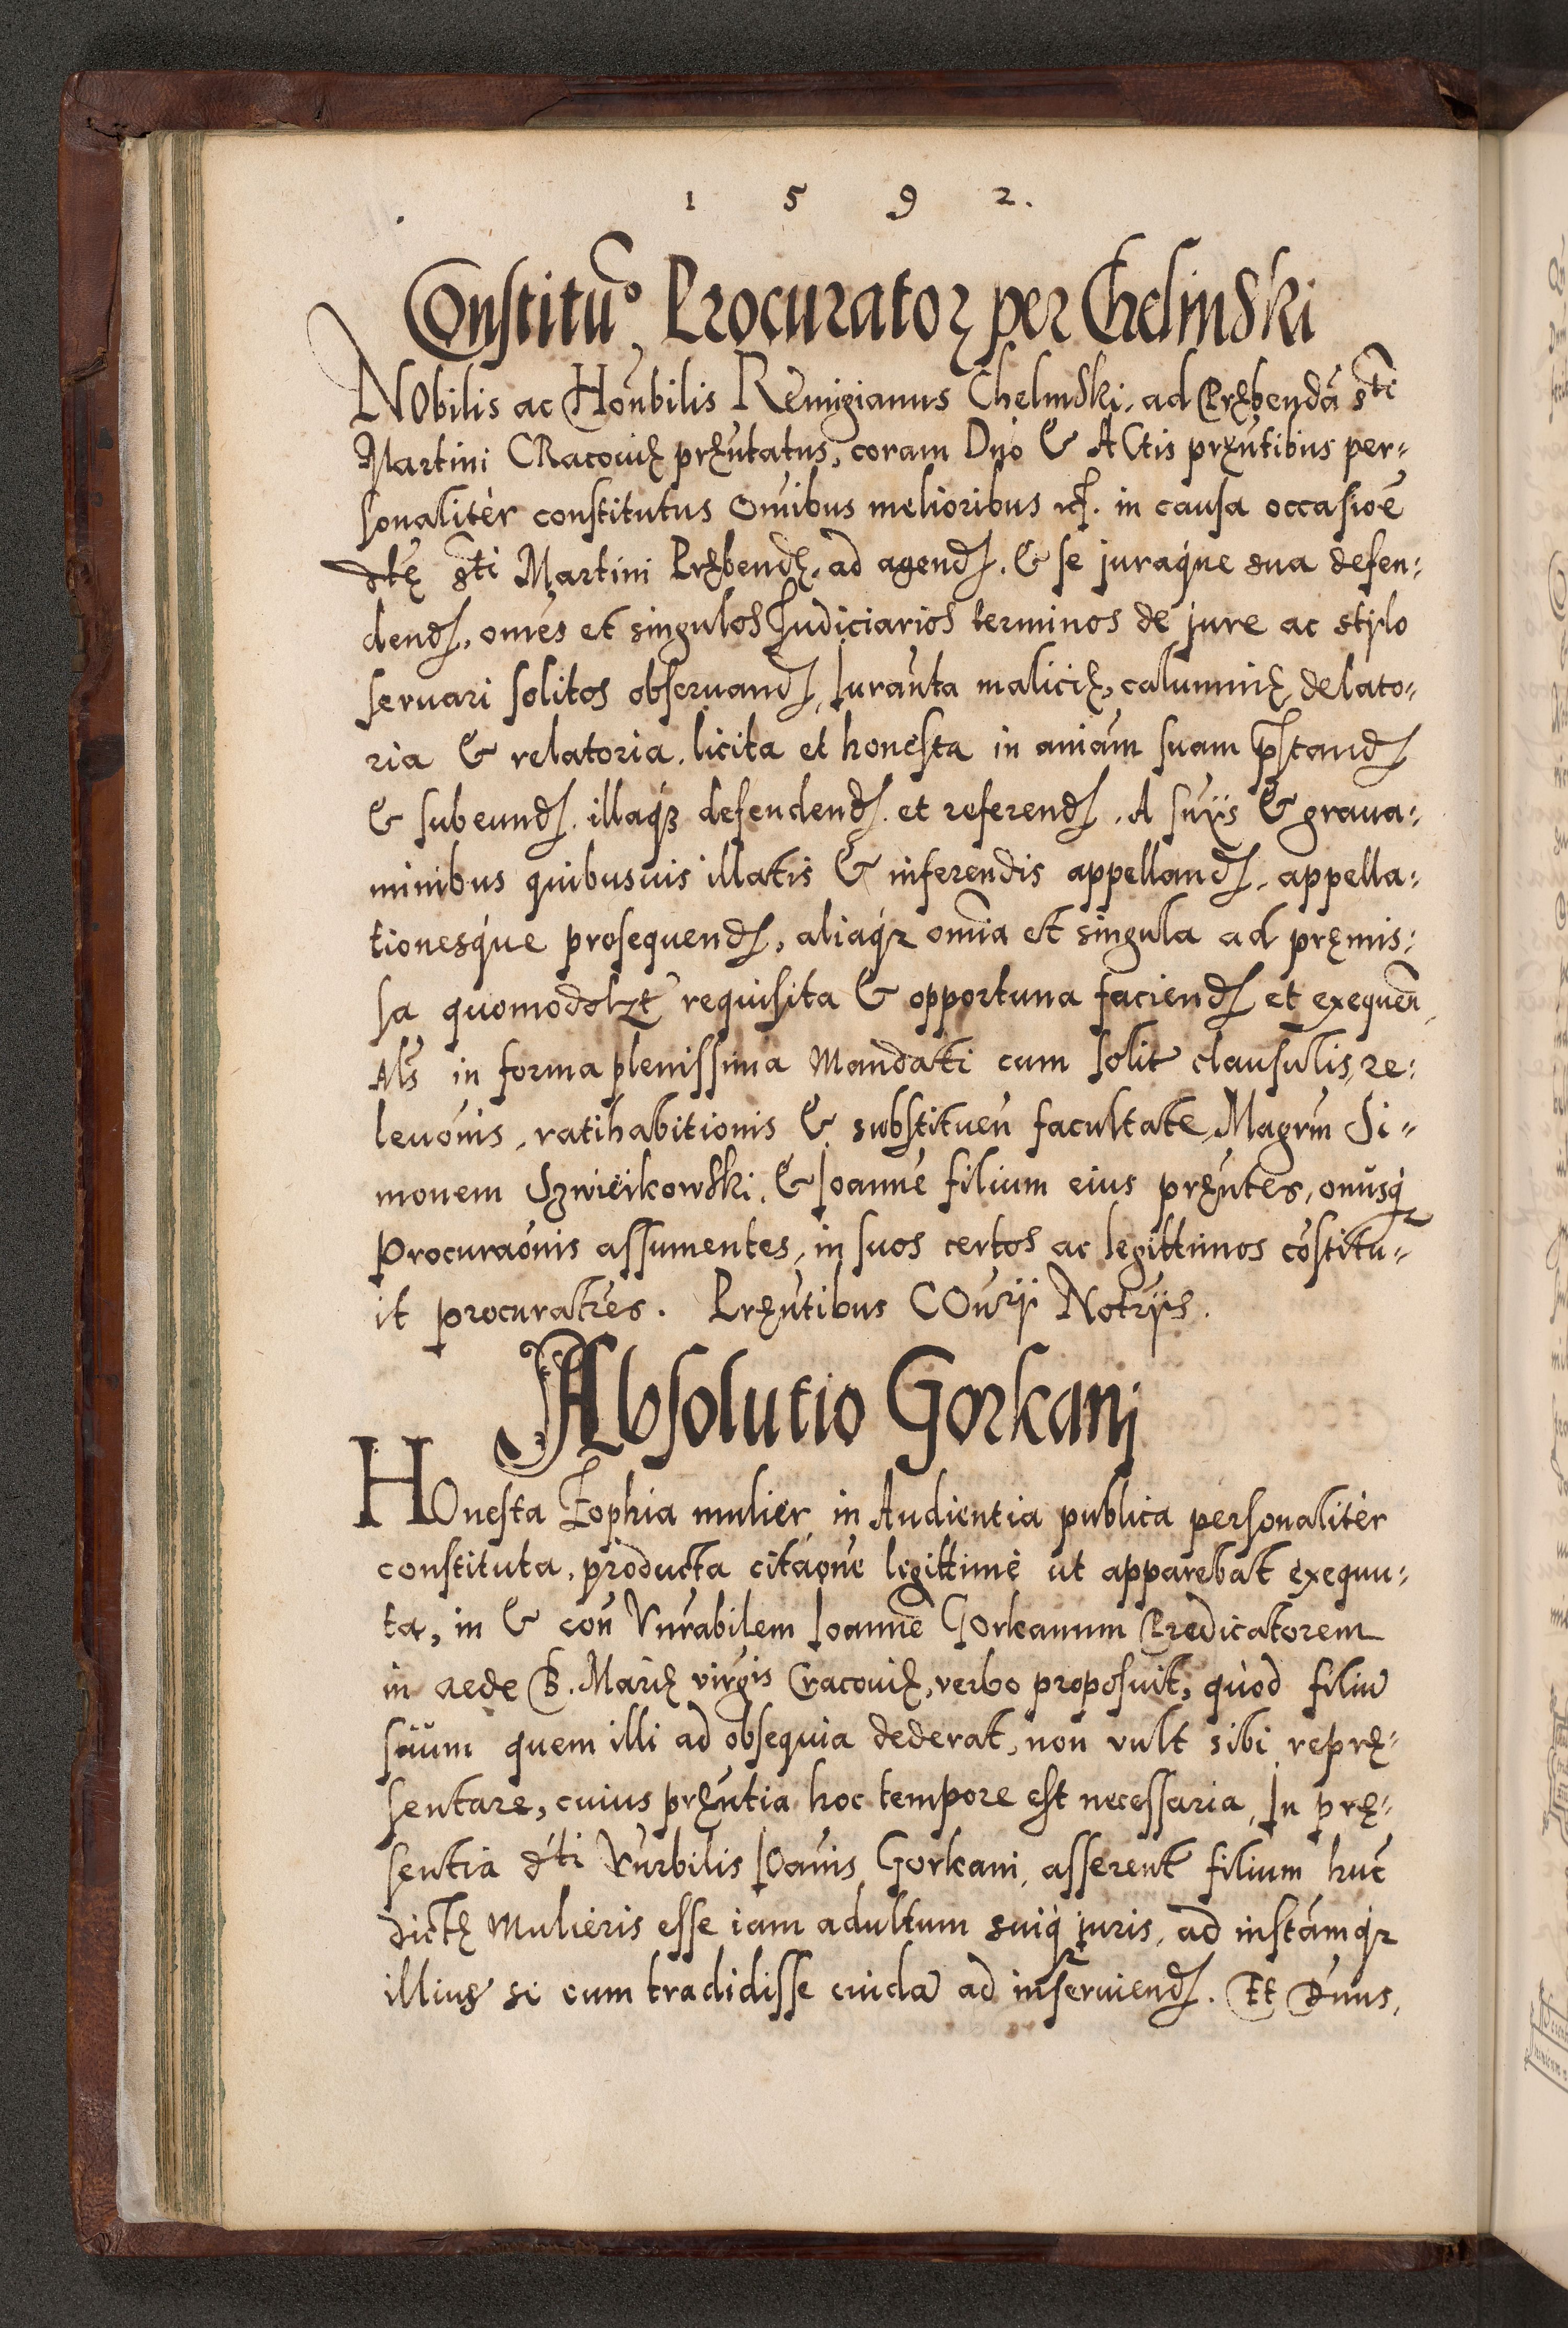 1592.
Constitũo Procuratoꝝ per Chelinski
NObilis ac Honbilis Remigianus Chelinski, ad Prębendã sti
Martini CRacouię pręntatus, coram Dno & ACtis pręntibus per=
sonalitèr constitutus Omibus melioribus in causa occasioe
dtę sti Martini Prębendę, ad agend. & se juraque sua defen=
dend, omes et singulos Judiciarios terminos de jure ac stylo
seruari solitos obseruand, Iuranta malicię, calumnię, delato=
ria & relatoria, licita et honesta in aniam suam pstand
& subeund. illaqꝫ defendend. et referend. A suijs & graua=
minibus quibusuis illatis & inferendis appelland, appella=
tionesque prosequend, aliaqꝫ omia et singula ad pręmis=
sa quomodolꝫt requisita & opportuna faciend et exequen,
Als in forma plenissima Mandati cum solit clausulis, re=
leuonis, ratihabitionis & substituen facultate, Magrm Si=
monem Szwierkowski, & Ioanne filium eius pręntes, onusqꝫ
Procuraonis assumentes, in suos certos ac legittimos costitu=
it procuratres. Pręntibus COnrij Notrijs.
Absolutio Gorkanj
HOnesta Zophia mulier in Audientia publica personalitèr
constituta, producta citaone legittimè ut apparebat exequu=
ta, in & con Vnrabilem Ioanne Gorkanum Predicatorem
in aede B. Marię virgis Cracouię, verbo proposuit, quòd filiu
suum quem illi ad obsequia dederat, non vult sibi reprę=
sentare, cuius pręntia hoc tempore est necessaria, In prę=
sentia dti Vnrbilis IOanis Gorkani, asserent filium huc
dictę Mulieris esse iam adultum suiqꝫ juris, ad instamqꝫ
illius si eum tradidisse cuida ad inseruiend. Et Dnus,